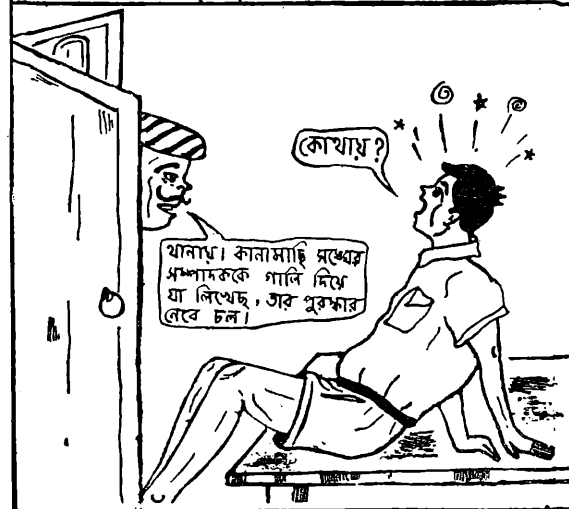 কোথায়?
থানায়। কানামাছি সঙ্ঘের
সম্পাদককে গালি দিয়ে
যা লিখেছ, তার পুরস্কার
নেবে চল।